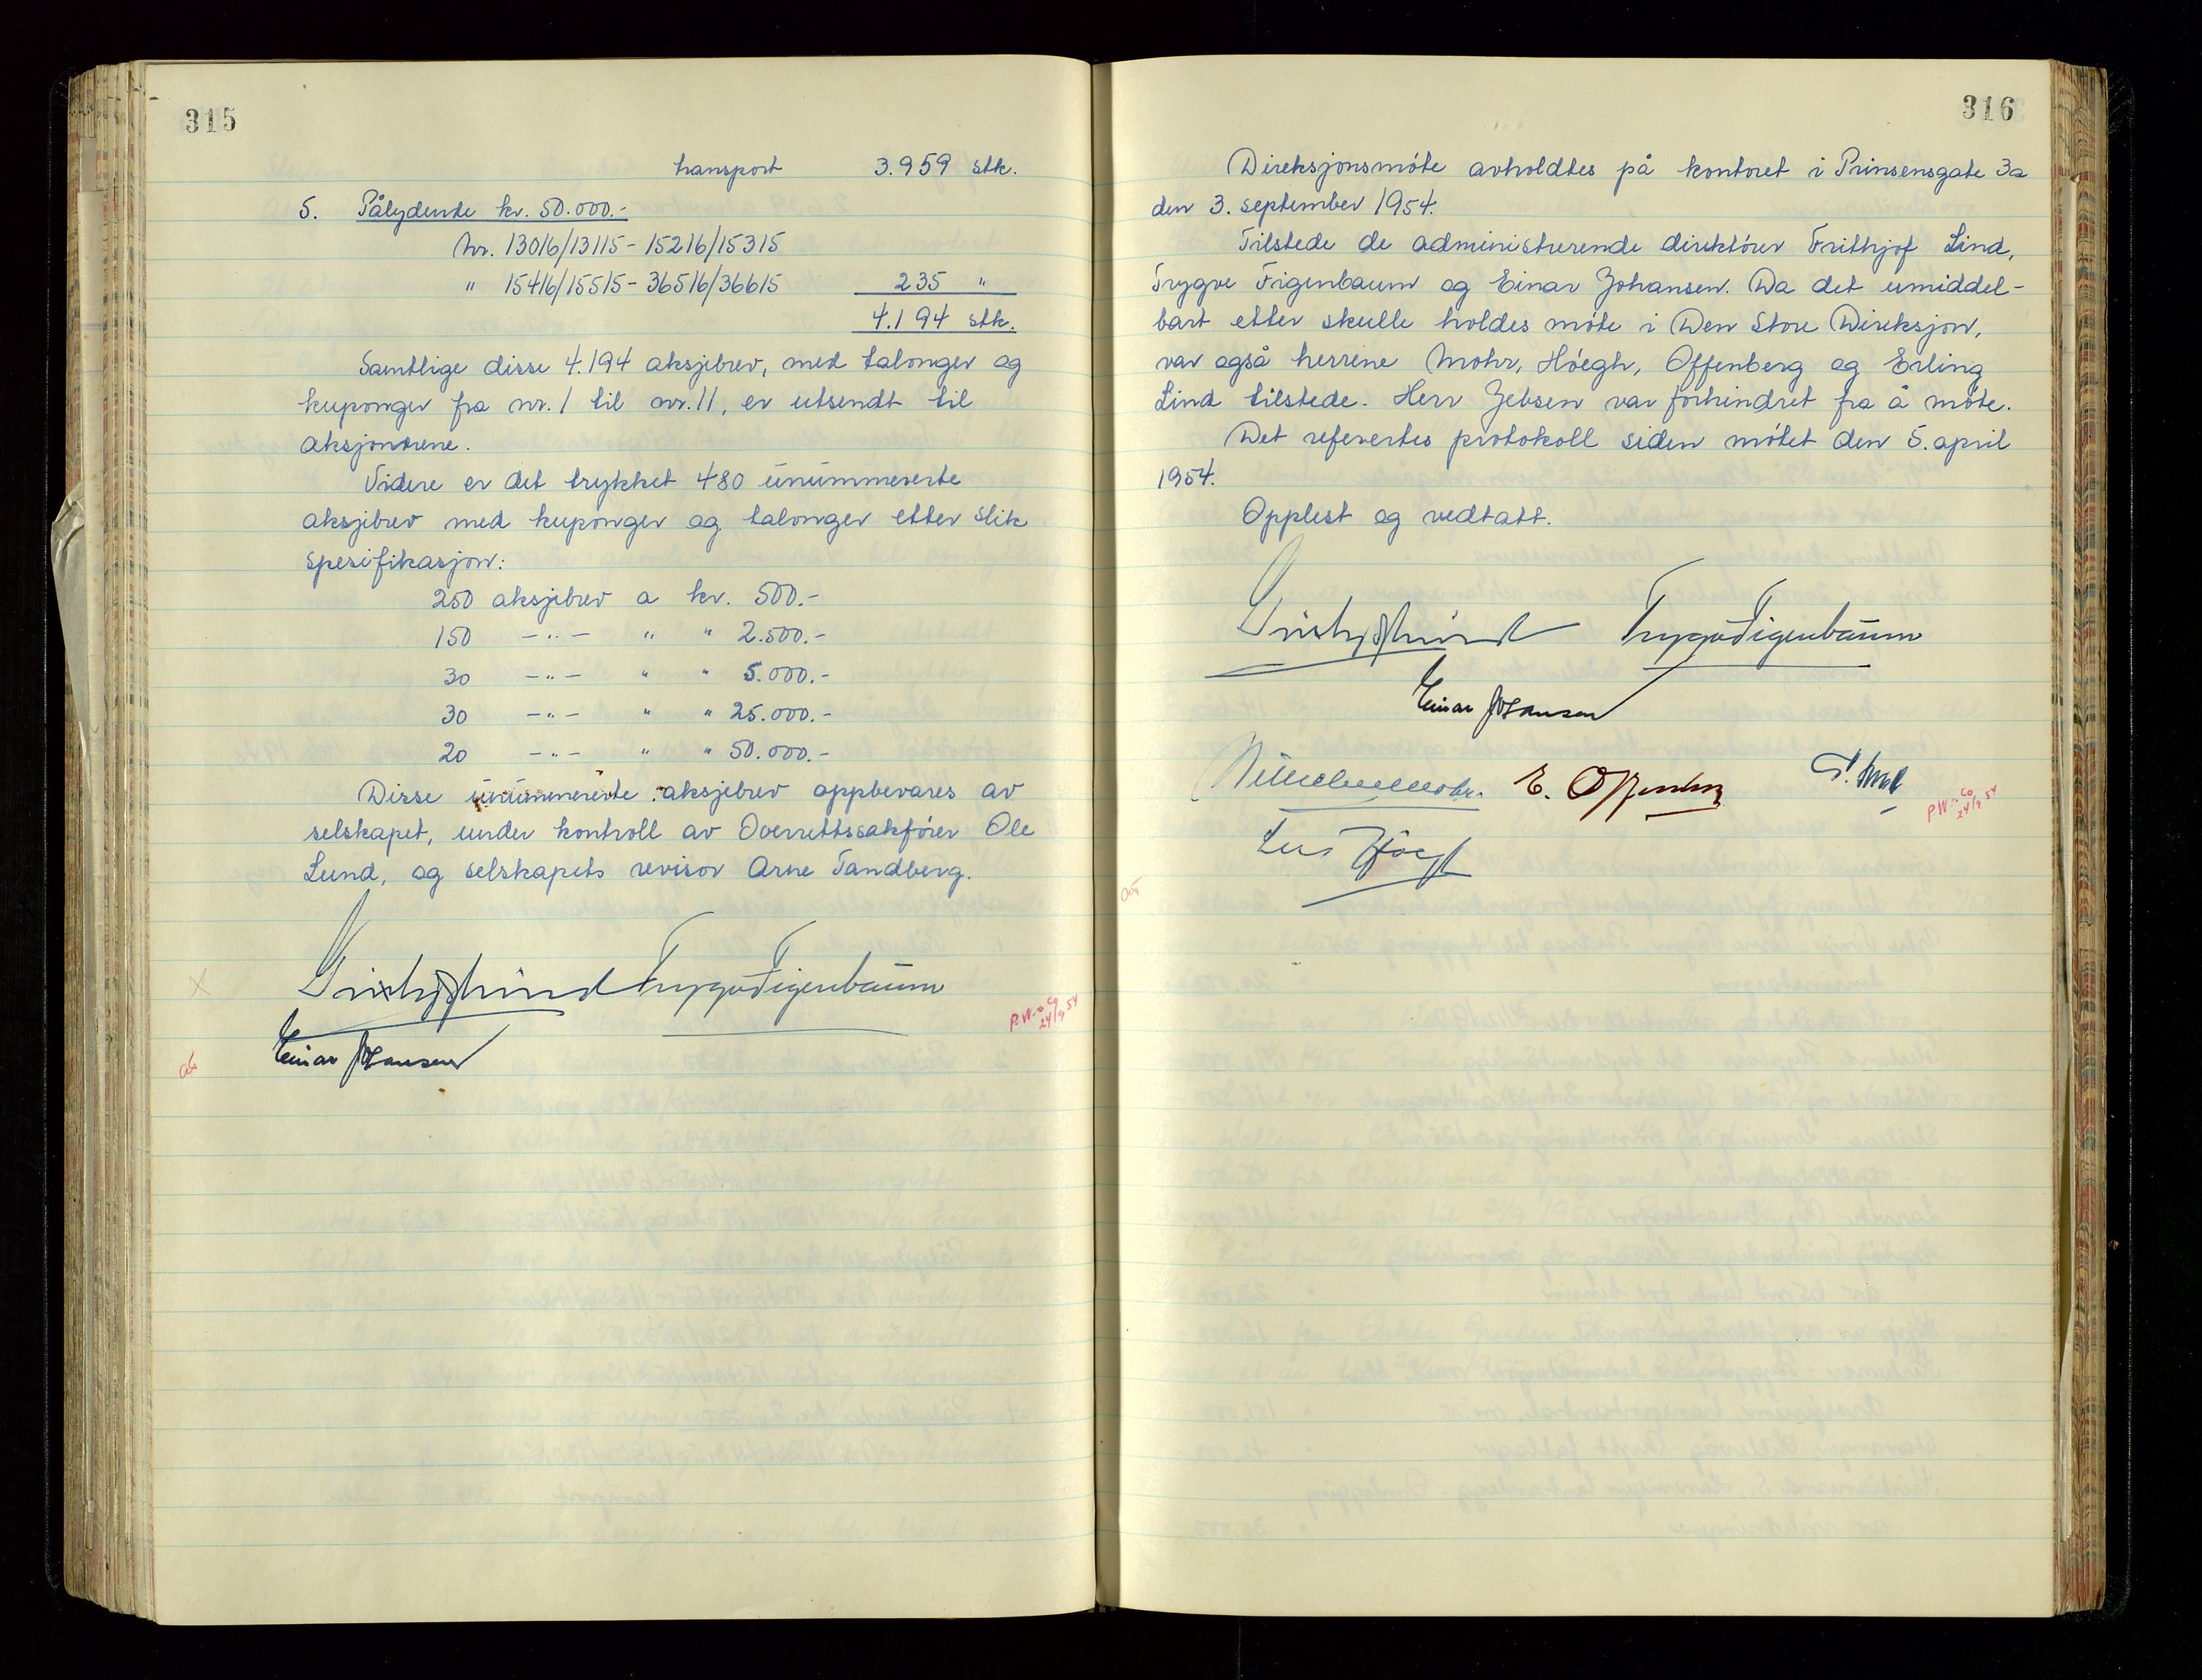 315
transport 3.959 stk.
5. Pålydende kr. 50.000.-
Nr. 13016/13115 - 15216/15315
" 15416/15515 - 36516/36615 235 "
4.194 stk.
Samtlige disse 4.194 aksjebrev, med talonger og
kuponger fra nr. 1 til nr. 11, er utsendt til
aksjonærene.
Videre er det trykket 480 unummererte
aksjebrev med kuponger og talonger etter slik
spesifikasjon:
250 aksjebrev a kr. 500.-
150 -"- " " 2.500.-
30 -"- " " 5.000.-
30 -"- " " 25.000.-
20 -"- " " 50.000.-
Disse unummererte aksjebrev oppbevares av
selskapet, under kontroll av Overrettssakfører Ole
Lund, og selskapets revisor Arne Tandberg.
Frithjof Lind Trygve Figenbaum
Einar Johansen
P.W. & Co
24/9 54
316
Direksjonsmøte avholdtes på kontoret i Prinsensgate 3a
den 3. september 1954.
Tilstede de administrerende direktører Frithjof Lind,
Trygve Figenbaum og Einar Johansen. Da det umiddel-
bart etter skulle holdes møte i Den Store Direksjon,
var også herrene Mohr, Höegh, Offenberg og Erling
Lind tilstede. Herr Jebsen var forhindret fra å møte.
Det referertes protokoll siden møtet den 5. april
1954.
Opplest og vedtatt.
Frithjof Lind Trygve Figenbaum
Einar Johansen
E. Offenberg
P.W. & Co
24/9 54
Leif Höegh